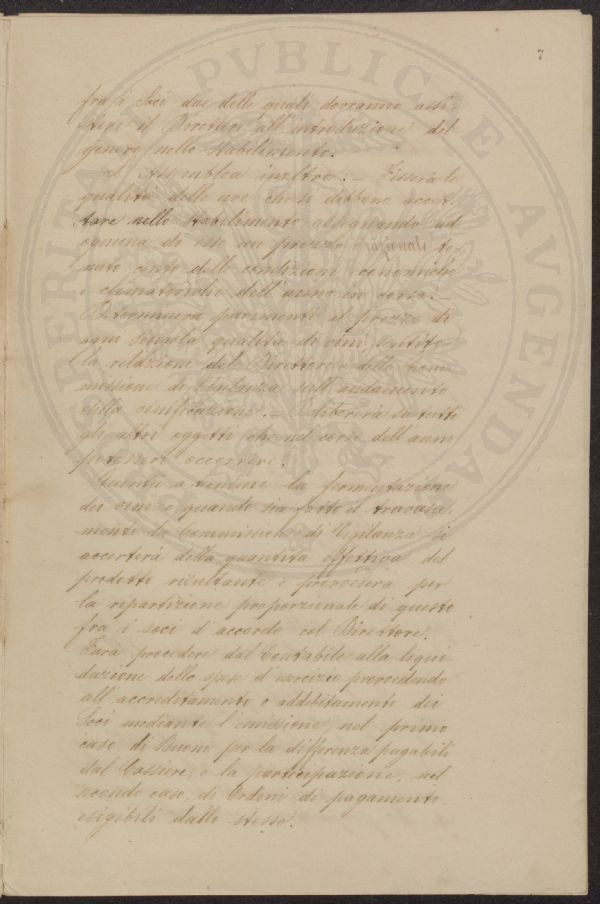 7
fra i Soci due delle quali dovranno assi-
stere il Direttore all'introduzione del
genere nello Stabilimento.
L'Assemblea inoltre: — Fisserà le
qualità delle uve che si debbono accet-
tare nello Stabilimento assegnando ad
ognuna di esse un prezzo razionale te-
nuto conto delle condizioni economiche
e climateriche dell'anno in corso. —
Determinerà parimenti il prezzo di
ogni singola qualità di vini sentita
la relazione del Direttore e della Com-
missione di Vigilanza sull'andamento
della vinificazione. — Delibererà su tutti
gli altri oggetti che nel corso dell'anno
potessero occorrere.
la fermentazione
dei vini e quando sia fatto il travasa-
mento la Commissione di Vigilanza si
accerterà della quantità effettiva del
prodotto risultante e procurerà per
la ripartizione proporzionale di questo
fra i soci d'accordo col Direttore.
Farà procedere dal Contabile alla liqui-
dazione delle spese d'esercizio provvedendo
all'accreditamento o addebitamento dei
Soci mediante l'emissione, nel primo
caso, di Buoni per la differenza pagabili
dal Cassiere, e la partecipazione, nel
secondo caso, di Ordini di pagamento
esigibili dallo stesso.
PUBLICAE
AUGENDAE